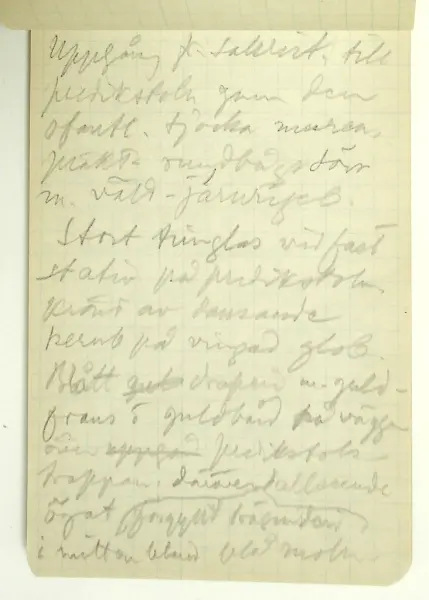 Uppgång fr. sakrist. till
predikstoln gnm den
ofantl. tjocka muren,
präkt. rundbågsdörr
m. våld-järnrigel.
Stort timglas vid fast
stativ på predikstoln,
krönt av dansande
kerub på vingad glob.
Blått draperi m. guld-
frans o guldbård på väggen
över uppgång predikstols-
trappan, däröver allseende
ögat förgyllt
i mitten bland blå moln.